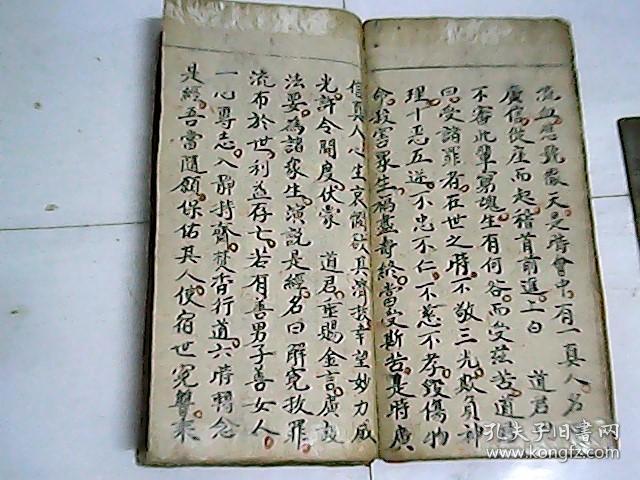 流血悲號徹天是時會中有一真人名
廣信從座而起稽首前進上白　道君
不審此輩窮魂生有何咎而受茲苦道
曰受諸罪者在世之時不敬三光欺負神
理十惡五逆不忠不仁不慈不孝毀傷物
命殺害眾生福盡壽終當受斯苦是時廣
信真人心生哀憫欲其濟拔幸望妙力威
光許令開度伏蒙　道君垂賜金言廣設
法要為諸眾生演説是經名曰解冤拔罪
流布於世利益存亡若有善男子善女人
一心專志入靜持齋焚香行道六時轉念
是經吾當隨願保佑其人使宿世冤讐乘
孔夫子旧书网
kongfz.com